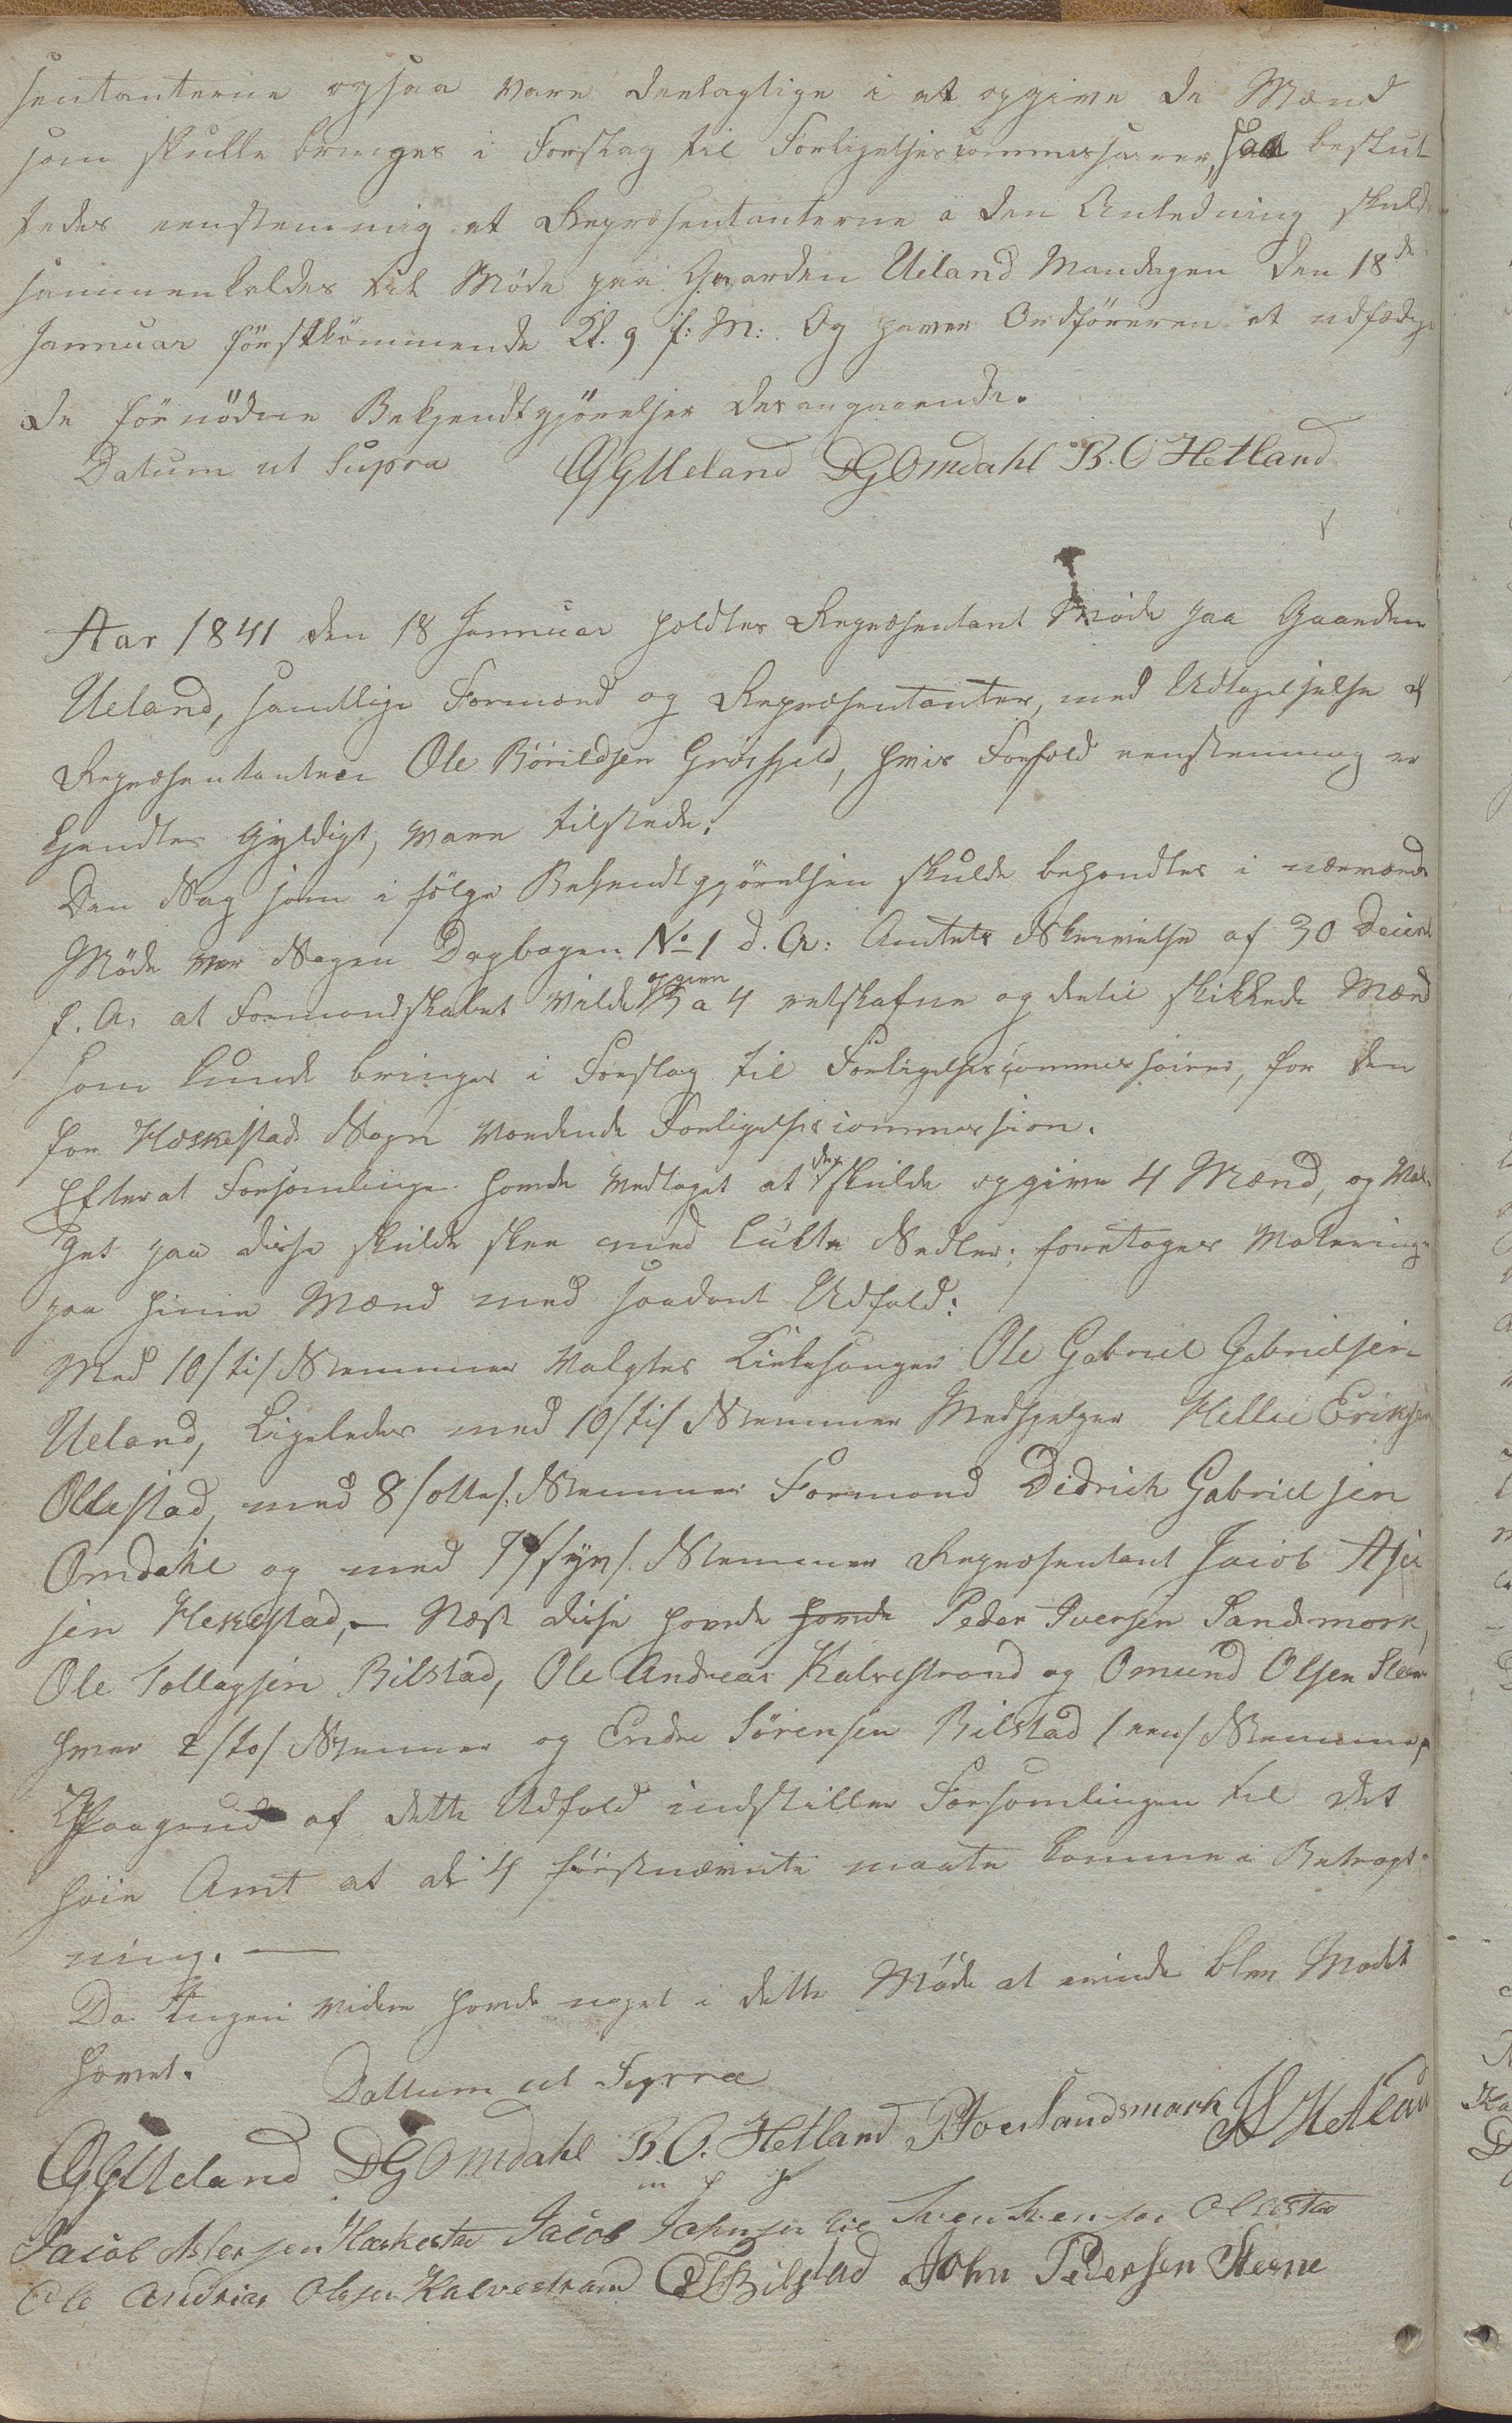 sentanterne ogsaa vare deelagtige i at opgive de Mænd
som skulle bringes i Forslag til Forligelsescommissairer, saa beslut
tedes eenstemmig at Repræsentanterne i den Anledning skulde
sammenkaldes til Møde paa Gaarden Ueland Mandagen den 18de
Januar förstkommende Kl. 9 f: M: Og haver Ordføreren at udfærdige
de fornödne Bekjendtgjörelser derangaaende.
Datum ut Supra GGUeland DGOmdahl B. O Hetland
Aar 1841 den 18 Januar holdtes Repræsentant Møde paa Gaarden
Ueland, samtlige Formænd og Repræsentanter, med Undtagelse af
Repræsentanten Ole Börildsen Grösfjeld, hvis Forfald eenstemmig er
kjendtes Gyldigt, vare tilstede.
Den Sag som i fölge Bekjendtgjörelsen skulde behandles i nærværende
Møde var Sagen Dagbogen No 1 d. A: Amtets Skrivelse af 30 Decemb
f. A. at Formandskabet vilde opgive 3 a 4 retskafne og dertil skikkede Mænd
som kunde bringes i Forslag til Forligelsescommissairer, for den
for Heskestads Sogn værende Forligelsescommission.
Efterat Forsamlingen havde vedtaget at der skulde opgives 4 Mænd, og Val-
get paa disse skulde skee med lukte Sedler; foretoges Voteringen
paa hine Mænd med saadant Udfald:
Med 10/ti/ Stemmer valgtes Kirkesanger Ole Gabriel Gabrielsen
Ueland, Ligeledes med 10/ti/ Stemmer Medhjelper Hellie Eriksen
Ollestad, med 8/otte/. Stemmer Formand Didrich Gabrielsen
Omdahl og med 7/syv/. Stemmer Repræsentant Jacob Asle
sen Heskestad,- Næst disse havde havde Peder Iversen Sandsmark,
Ole Tollagsen Bilstad, Ole Andreas Kalvestrand og Omund Olsen Steen
hver 2/to/ Stemmer og Endre Sørensen Bilstad 1/een/ Stemme,
Paagrund af dette Udfald indstiller Forsamlingen til det
høie Amt at de 4 förstnævnte maate komme i Betragt-
ning. —
Da Ingen videre havde noget i dette Møde at erindre blev Mødet
hævet. Dattum ut Supra
GGUeland DGOmdahl B. O. Hetland Sandsmark Hetland
Jacob Aslersen Heskestad Jacob Johnsen Lie Svend Svensen Olestad
Ole Andrias Olesen Kalvestrand Bilstad John Pedersen Steene